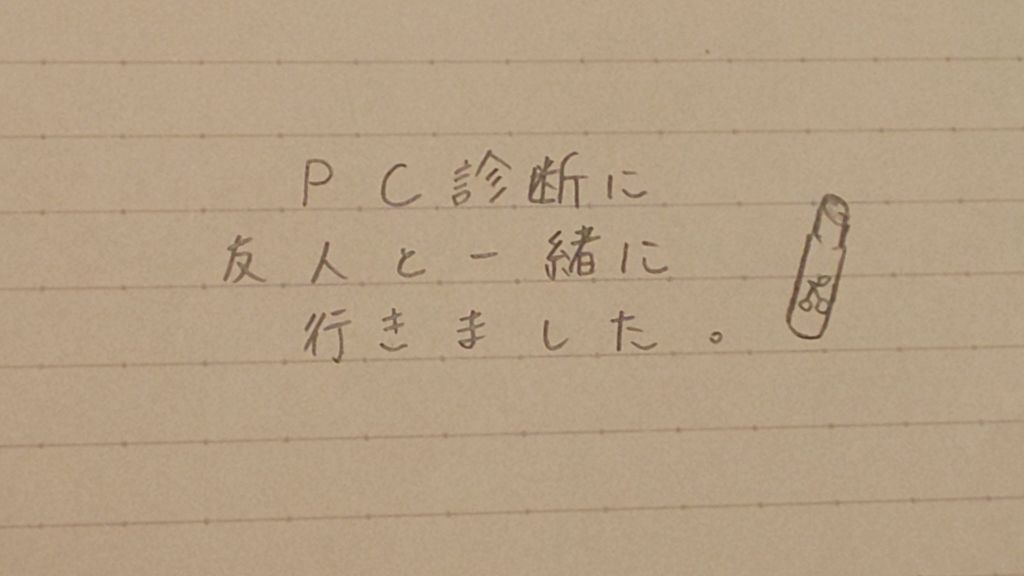 PC診断に
友人と一緒に
行きました。